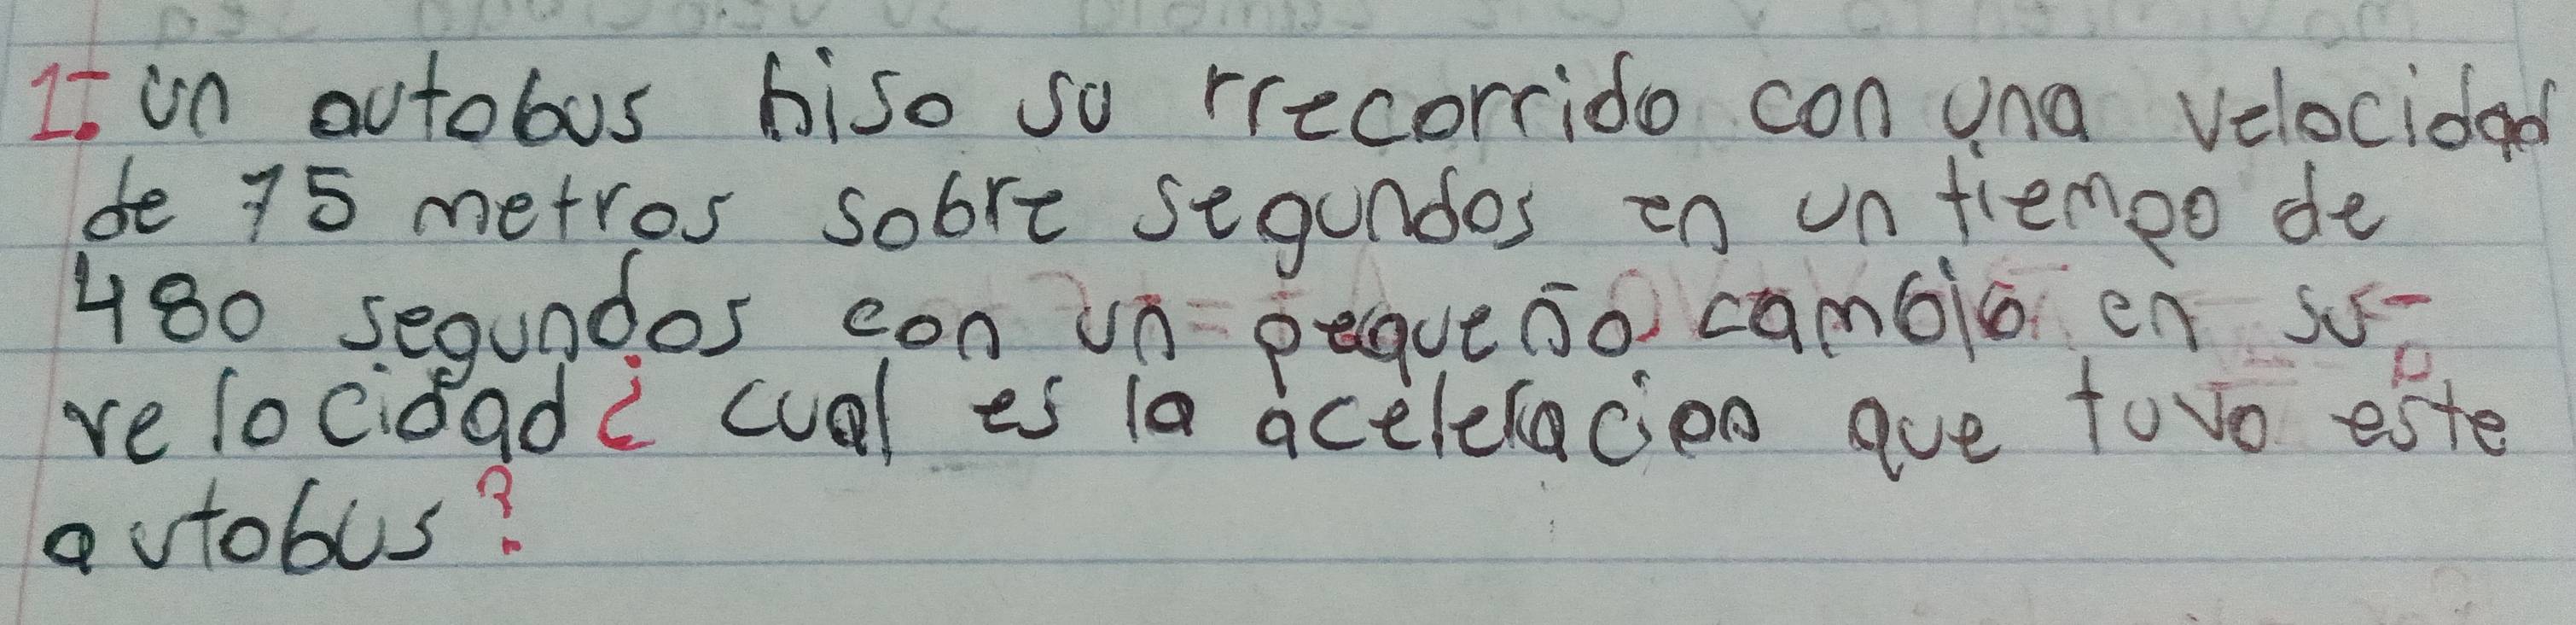 1. un autobus hiso su rrecorrido con una velocidad
de 75 metros sobre segundos en un tiempo de
480 segundos con un pequeño cambio en su
velocidad ¿ cual es la aceleracion que tuvo este
autobus?